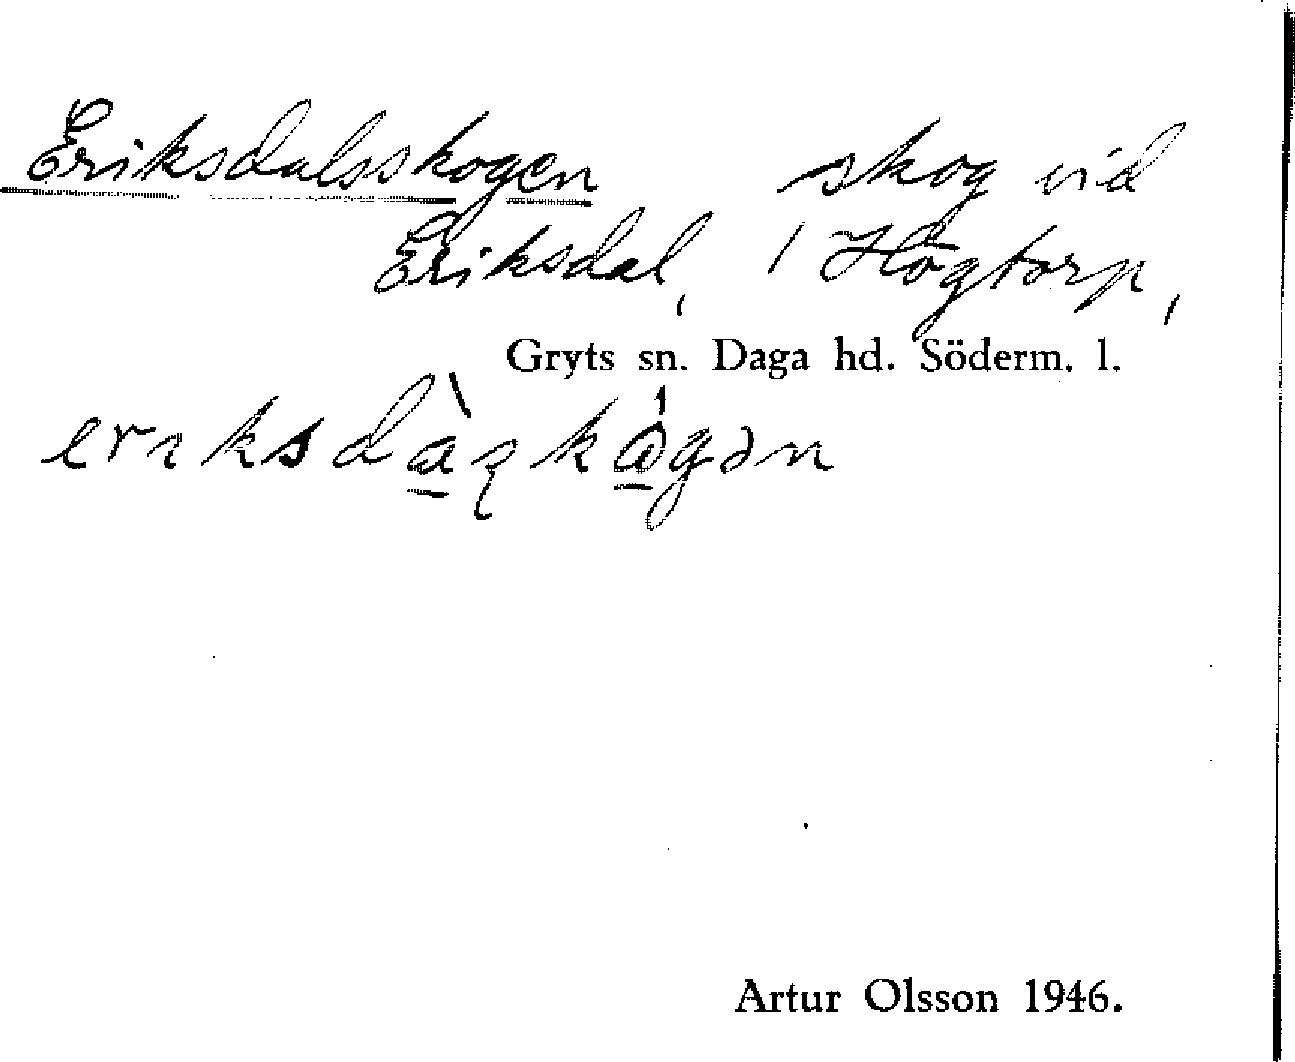 Eriksdalsskogen skog vid
Eriksdal, / Högtorp,
Gryts sn. Daga hd. Söderm. l.
Artur Olsson 1946.